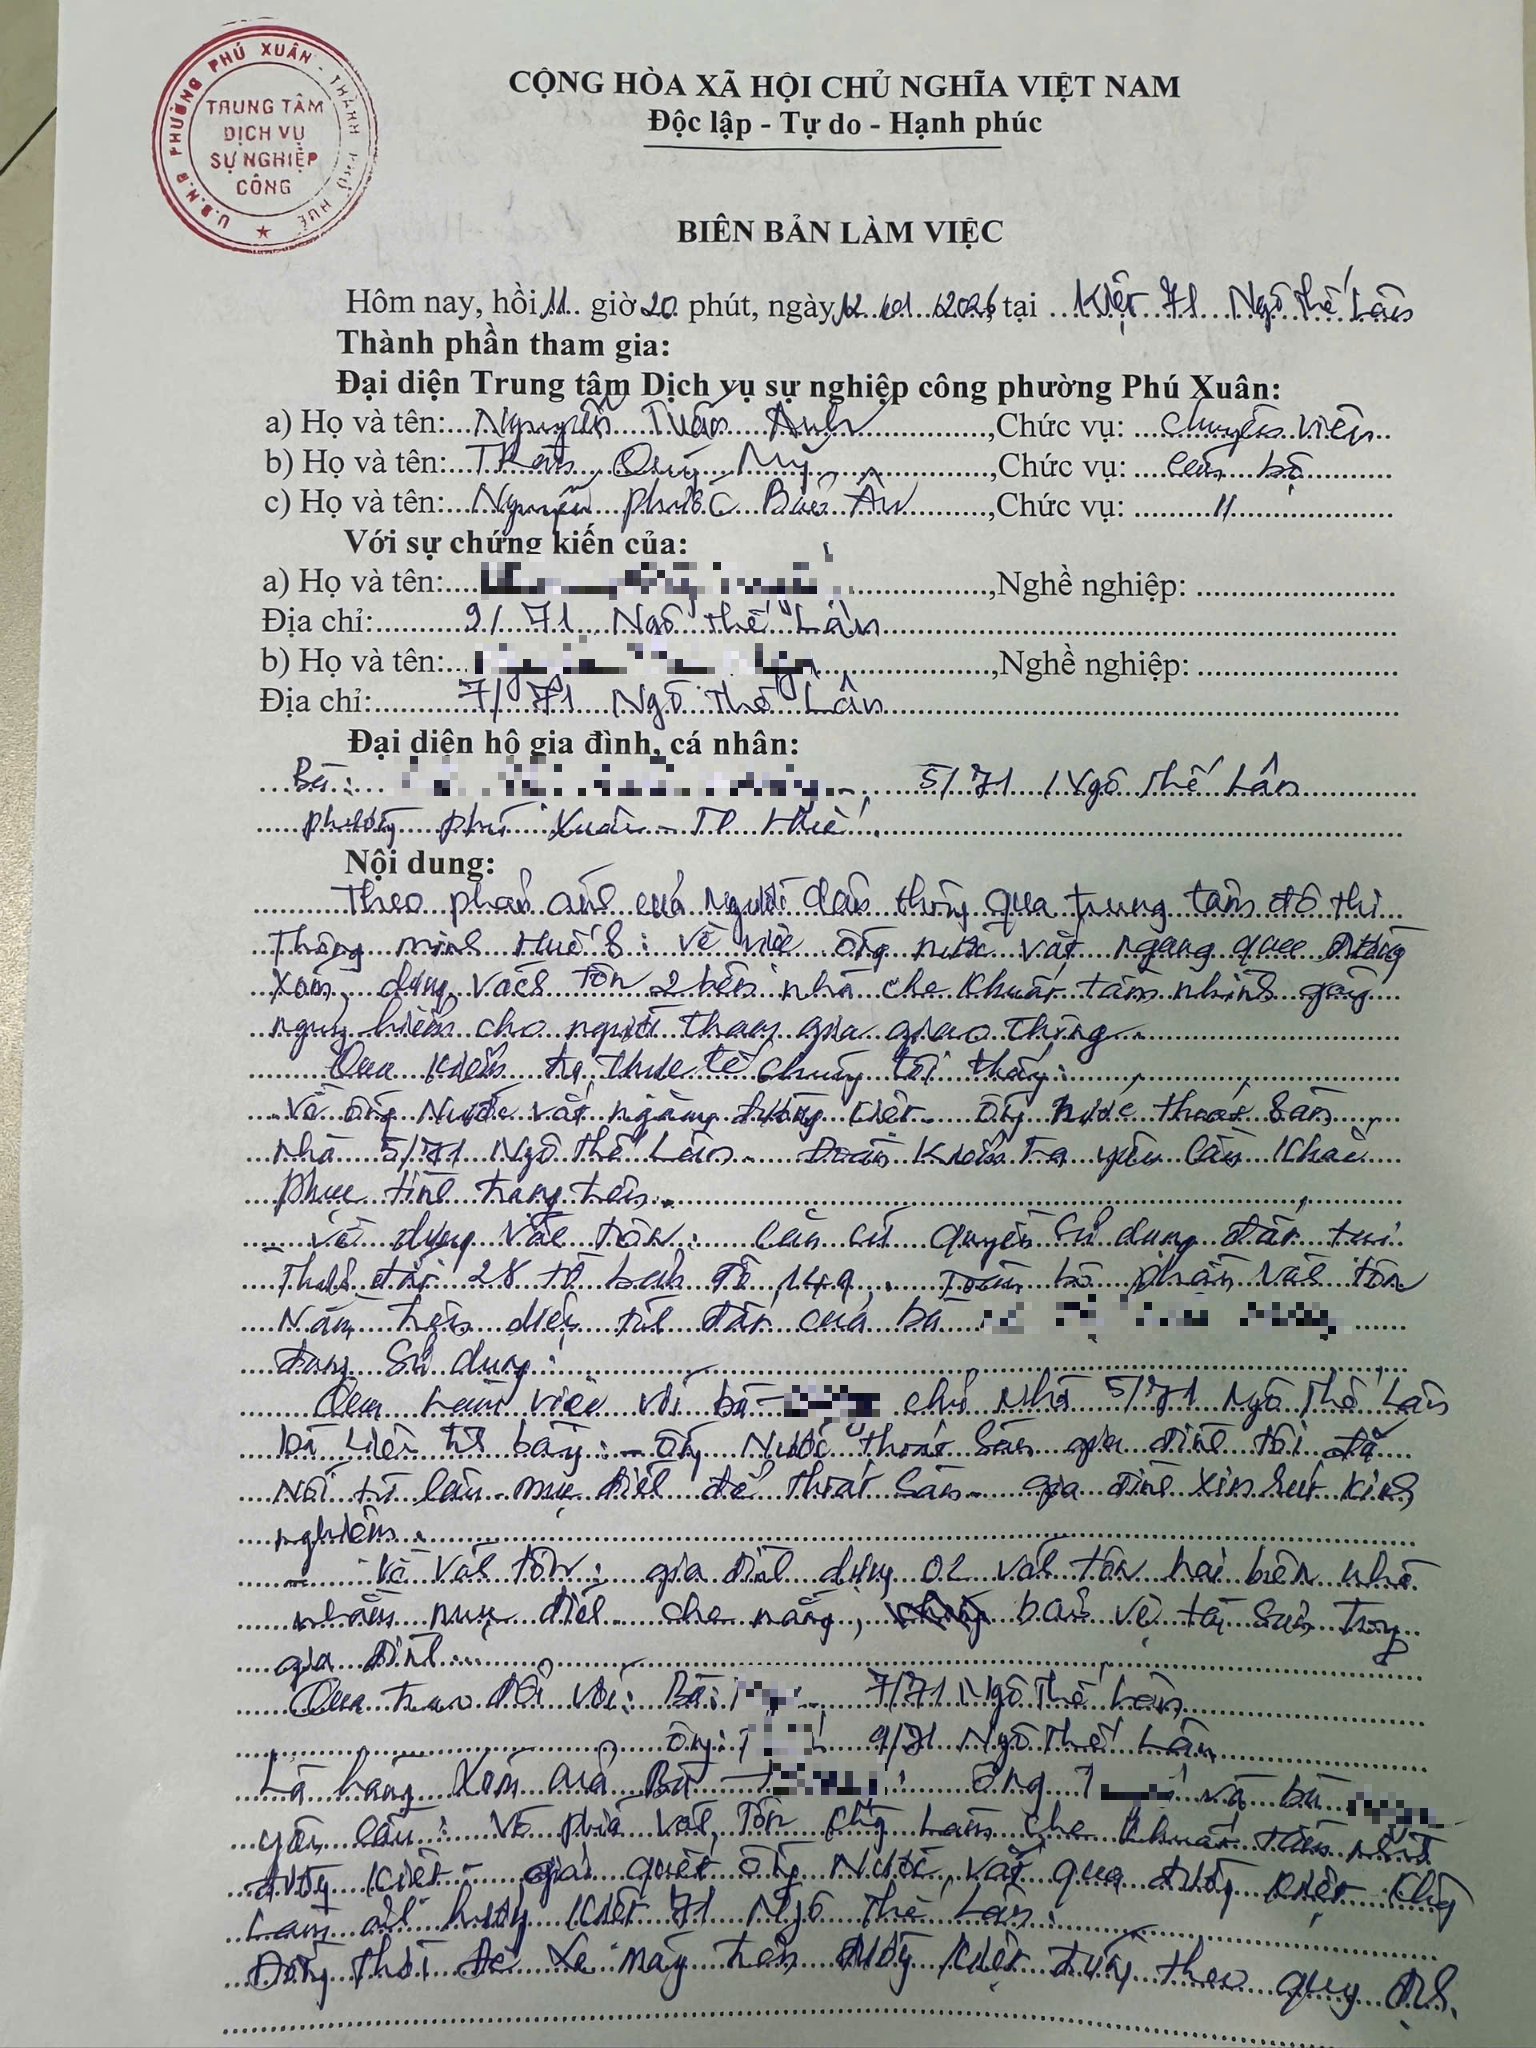 U.B.N.D PHƯỜNG PHÚ XUÂN - THÀNH PHỐ HUẾ
TRUNG TÂM
DỊCH VỤ
SỰ NGHIỆP
CÔNG
CỘNG HÒA XÃ HỘI CHỦ NGHĨA VIỆT NAM
Độc lập - Tự do - Hạnh phúc
BIÊN BẢN LÀM VIỆC
Hôm nay, hồi 11 giờ 20 phút, ngày 12.01.2026, tại Kiệt 71 Ngô Thế Lân
Thành phần tham gia:
Đại diện Trung tâm Dịch vụ sự nghiệp công phường Phú Xuân:
a) Họ và tên: Nguyễn Tuấn Anh, Chức vụ: chuyên viên
b) Họ và tên: Trần Quý Mỹ, Chức vụ: cán bộ
c) Họ và tên: Nguyễn Phước Bảo Ân, Chức vụ: 11
Với sự chứng kiến của:
a) Họ và tên: , Nghề nghiệp:
Địa chỉ: 9/71 Ngô Thế Lân
b) Họ và tên: , Nghề nghiệp:
Địa chỉ: 7/71 Ngô Thế Lân
Đại diện hộ gia đình, cá nhân:
Bà: , 5/71 Ngô Thế Lân
phường Phú Xuân - TP Huế.
Nội dung:
Theo phản ánh của người dân thông qua trung tâm đô thị
Thông minh Huế S: về việc ống nước vắt ngang qua đường
xóm, dựng vách tôn 2 bên nhà che khuất tầm nhìn gây
nguy hiểm cho người tham gia giao thông.
Qua kiểm tra thực tế chúng tôi thấy:
Về ống nước vắt ngang đường kiệt ống nước thoát sàn
nhà 5/71 Ngô Thế Lân. Đoàn kiểm tra yêu cầu khắc
phục tình trạng trên.
Về dựng vách tôn: căn cứ quyền sử dụng đất tại
Thửa đất 28 tờ bản đồ 149. Toàn bộ phần vách tôn
nằm trên diện tích đất của bà
đang sử dụng.
Qua làm việc với bà chủ nhà 5/71 Ngô Thế Lân
bà trình bày: - ống nước thoát sàn gia đình tôi đã
nối từ lâu mục đích để thoát sàn - gia đình xin rút kinh
nghiệm.
Về vách tôn: gia đình dựng 02 vách tôn hai bên nhà
nhằm mục đích che nắng, bảo vệ tài sản trong
gia đình.
Qua trao đổi với: Bà: 7/71 Ngô Thế Lân
ông: 9/71 Ngô Thế Lân
Là hàng xóm của Bà : Ông và bà
yêu cầu: Về phía vách tôn không làm che khuất tầm nhìn
đường kiệt - giải quyết ống nước vắt qua đường kiệt không
làm ảnh hưởng kiệt 71 Ngô Thế Lân.
Đồng thời để xe máy trên đường kiệt đúng theo quy định.